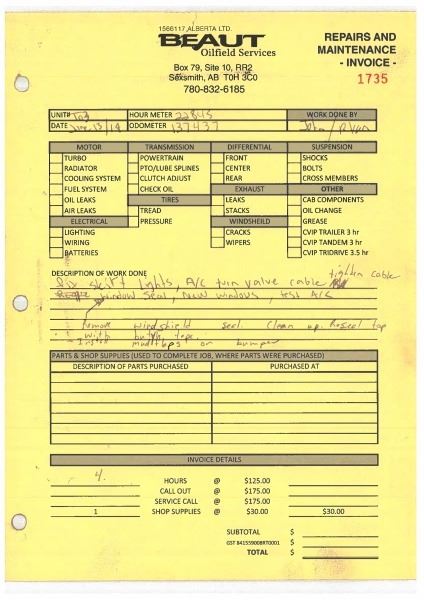 1566117 ALBERTA LTD.
BEAUT
Oilfield Services
Box 79, Site 10, RR2
Sexsmith, AB T0H 3C0
780-832-6185
REPAIRS AND
MAINTENANCE
- INVOICE -
1735
UNIT# HOUR METER 22845 WORK DONE BY
DATE ODOMETER 137437 John / Ryan
MOTOR TRANSMISSION DIFFERENTIAL SUSPENSION
TURBO POWERTRAIN FRONT SHOCKS
RADIATOR PTO/LUBE SPLINES CENTER BOLTS
COOLING SYSTEM CLUTCH ADJUST REAR CROSS MEMBERS
FUEL SYSTEM CHECK OIL EXHAUST OTHER
OIL LEAKS TIRES LEAKS CAB COMPONENTS
AIR LEAKS TREAD STACKS OIL CHANGE
ELECTRICAL PRESSURE WINDSHEILD GREASE
LIGHTING CRACKS CVIP TRAILER 3 hr
WIRING WIPERS CVIP TANDEM 3 hr
BATTERIES CVIP TRIDRIVE 3.5 hr
DESCRIPTION OF WORK DONE
Fix skirt lights, A/C turn valve cable tighten cable
window seal, New windows, test A/C
Remove windshield seal. Clean up. Reseal top
with butyl tape.
- Install mudflaps on bumper
PARTS & SHOP SUPPLIES (USED TO COMPLETE JOB, WHERE PARTS WERE PURCHASED)
DESCRIPTION OF PARTS PURCHASED PURCHASED AT
INVOICE DETAILS
4. HOURS @ $125.00
CALL OUT @ $175.00
SERVICE CALL @ $175.00
1 SHOP SUPPLIES @ $30.00 $30.00
SUBTOTAL $
GST 841559008RT0001 $
TOTAL $